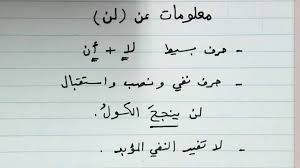 معلومات عن (لن)
- حرف بسيط لا + أن
- حرف نفي ونصب واستقبال
لن ينجحَ الكسولُ.
- لا تفيد النفي المؤبد.